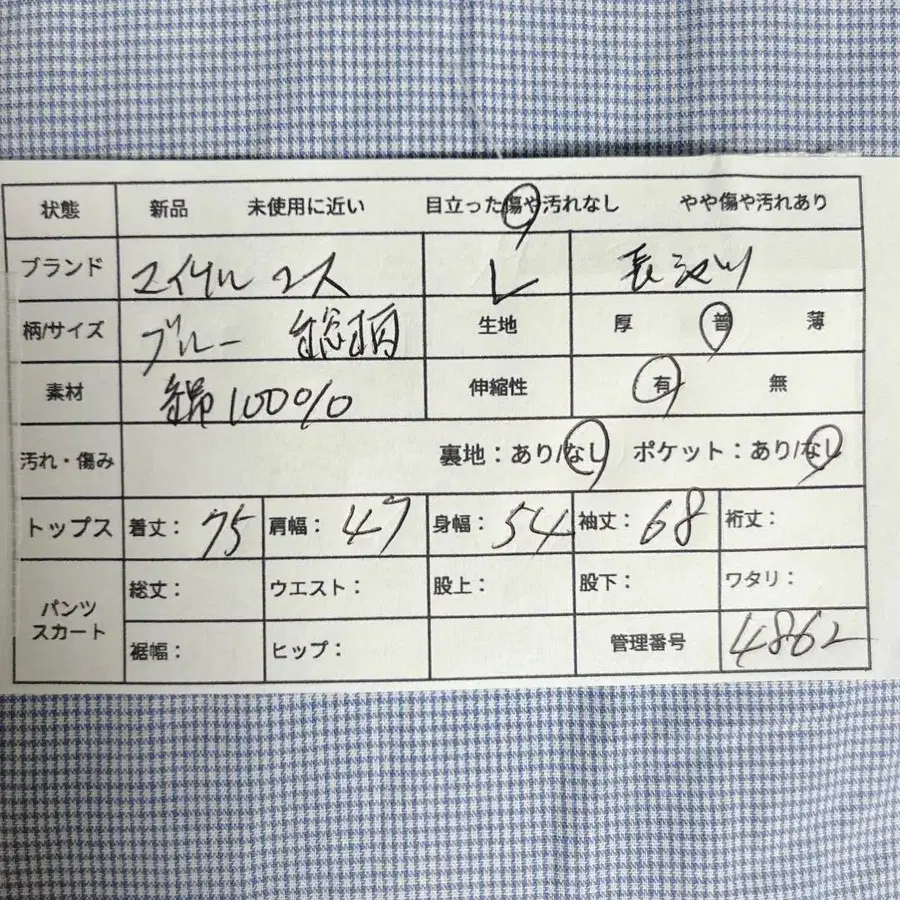 状態 新品 未使用に近い 目立った傷や汚れなし やや傷や汚れあり
ブランド マイケル コース L 長シャツ
柄/サイズ ブルー 総柄 生地 厚 普 薄
素材 綿100% 伸縮性 有 無
汚れ・傷み 裏地:あり/なし ポケット:あり/なし
トップス 着丈: 75 肩幅: 47 身幅: 54 袖丈: 68 裄丈:
パンツ スカート 総丈: ウエスト: 股上: 股下: ワタリ:
裾幅: ヒップ: 管理番号 4862